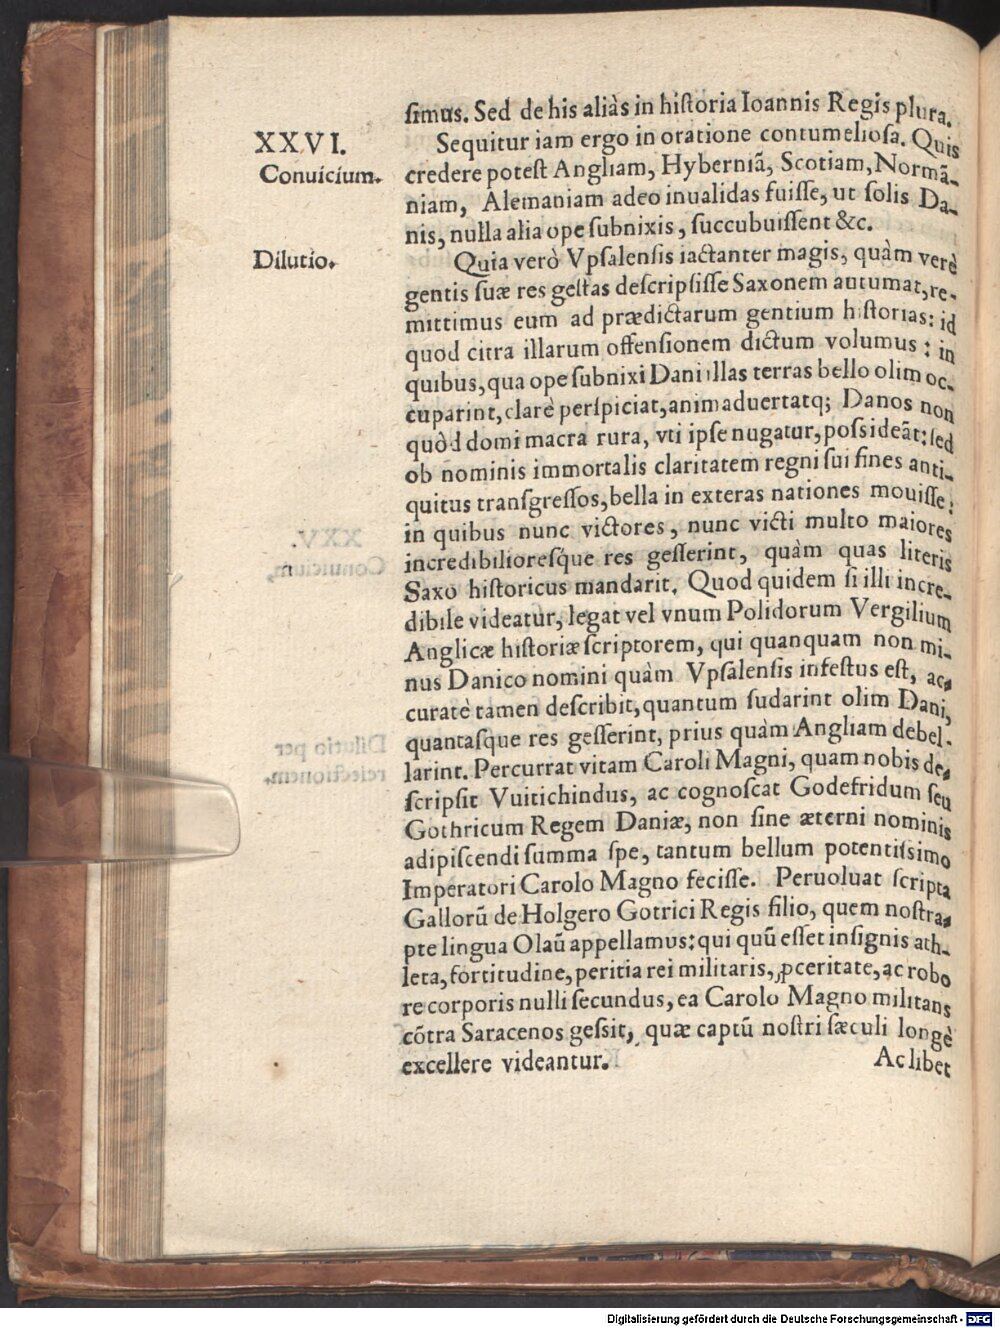 ſimus. Sed de his aliàs in hiſtoria Ioannis Regis plura.
XXVI.
Conuicium.
Sequitur iam ergo in oratione contumelioſa. Quis
credere poteſt Angliam, Hyberniã, Scotiam, Normã-
niam, Alemaniam adeo inualidas fuiſſe, ut ſolis Da-
nis, nulla alia ope ſubnixis, ſuccubuiſſent &c.
Dilutio.
Quia verò Vpſalenſis iactanter magis, quàm verè
gentis ſuæ res geſtas deſcripſiſſe Saxonem autumat, re-
mittimus eum ad prædictarum gentium hiſtorias: id
quod citra illarum offenſionem dictum volumus: in
quibus, qua ope ſubnixi Dani illas terras bello olim oc-
cuparint, clarè perſpiciat, animaduertatq; Danos non
quòd domi macra rura, vti ipſe nugatur, poſsideãt: ſed
ob nominis immortalis claritatem regni ſui fines anti-
quitus tranſgreſſos, bella in exteras nationes mouiſſe:
in quibus nunc victores, nunc victi multo maiores
incredibilioreſq́ue res geſſerint, quàm quas literis
Saxo hiſtoricus mandarit. Quod quidem ſi illi incre-
dibile videatur, legat vel vnum Polidorum Vergilium
Anglicæ hiſtoriæ ſcriptorem, qui quanquam non mi-
nus Danico nomini quàm Vpſalenſis infeſtus eſt, ac-
curatè tamen deſcribit, quantum ſudarint olim Dani,
quantaſque res geſſerint, prius quàm Angliam debel-
larint. Percurrat vitam Caroli Magni, quam nobis de-
ſcripſit Vuitichindus, ac cognoſcat Godefridum ſeu
Gothricum Regem Daniæ, non ſine æterni nominis
adipiſcendi ſumma ſpe, tantum bellum potentiſsimo
Imperatori Carolo Magno feciſſe. Peruoluat ſcripta
Gallorũ de Holgero Gotrici Regis filio, quem noſtra-
pte lingua Olaũ appellamus: qui quũ eſſet inſignis ath-
leta, fortitudine, peritia rei militaris, ꝓceritate, ac robo
re corporis nulli ſecundus, ea Carolo Magno militans
cõtra Saracenos geſsit, quæ captũ noſtri ſæculi longè
excellere videantur.
Ac libet
Digitalisierung gefördert durch die Deutsche Forschungsgemeinschaft - DFG